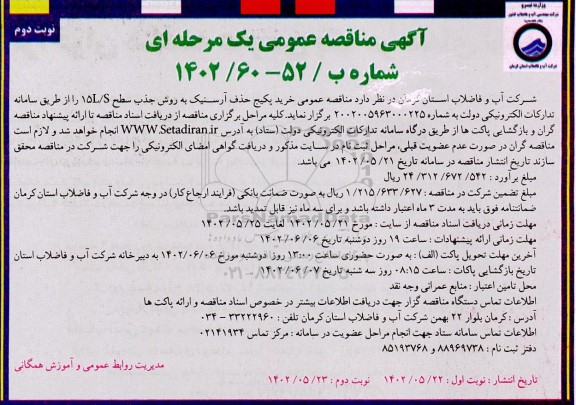 نوبت دوم
وزارت نیرو
شرکت مهندسی آب و فاضلاب کشور
شرکت آب و فاضلاب استان کرمان
آگهی مناقصه عمومی یک مرحله ای
شماره ب / ۵۲- ۶۰/ ۱۴۰۲
شرکت آب و فاضلاب استان کرمان در نظر دارد مناقصه عمومی خرید پکیج حذف آرسنیک به روش جذب سطح ۱۵L/S را از طریق سامانه
تدارکات الکترونیکی دولت به شماره ۲۰۰۲۰۰۵۹۶۳۰۰۰۲۲۵ برگزار نماید. کلیه مراحل برگزاری مناقصه از دریافت اسناد مناقصه تا ارائه پیشنهاد مناقصه
گران و بازگشایی پاکت ها از طریق درگاه سامانه تدارکات الکترونیکی دولت (ستاد) به آدرس WWW.Setadiran.ir انجام خواهد شد و لازم است
مناقصه گران در صورت عدم عضویت قبلی، مراحل ثبت نام در سایت مذکور و دریافت گواهی امضای الکترونیکی را جهت شرکت در مناقصه محقق
سازند تاریخ انتشار مناقصه در سامانه تاریخ ۱۴۰۲/۰۵/۲۱ می باشد.
مبلغ برآورد : ۲۴/۳۱۲/ ۶۷۲ /۵۴۲ ریال
مبلغ تضمین شرکت در مناقصه : ۱/۲۱۵/ ۶۳۳/۶۲۷ ریال به صورت ضمانت بانکی (فرایند ارجاع کار) در وجه شرکت آب و فاضلاب استان کرمان
ضمانتنامه فوق باید به مدت ۳ ماه اعتبار داشته باشد و برای سه ماه نیز قابل تمدید باشد.
مهلت زمانی دریافت اسناد مناقصه از سایت : مورخ ۱۴۰۲/۰۵/۲۱ لغایت ۱۴۰۲/۰۵/۲۵
مهلت زمانی ارائه پیشنهادات : ساعت ۱۹ روز دوشنبه تاریخ ۱۴۰۲/۰۶/۰۶
آخرین مهلت تحویل پاکت (الف) : به صورت حضوری ساعت ۱۳:۰۰ روز دوشنبه مورخ ۱۴۰۲/۰۶/۰۶ به دبیرخانه شرکت آب و فاضلاب استان
تاریخ بازگشایی پاکات : ساعت ۰۸:۱۵ روز سه شنبه تاریخ ۱۴۰۲/۰۶/۰۷
محل تامین اعتبار : منابع عمرانی وجه نقد
اطلاعات تماس دستگاه مناقصه گزار جهت دریافت اطلاعات بیشتر در خصوص اسناد مناقصه و ارائه پاکت ها
آدرس : کرمان بلوار ۲۲ بهمن شرکت آب و فاضلاب استان کرمان تلفن : ۳۳۲۲۲۹۶۰ - ۰۳۴
اطلاعات تماس سامانه ستاد جهت انجام مراحل عضویت در سامانه : مرکز تماس ۰۲۱۴۱۹۳۴
دفتر ثبت نام : ۸۸۹۶۹۷۳۸ و ۸۵۱۹۳۷۶۸
مدیریت روابط عمومی و آموزش همگانی
تاریخ انتشار : نوبت اول : ۱۴۰۲/۰۵/۲۲ نوبت دوم : ۱۴۰۲/۰۵/۲۳